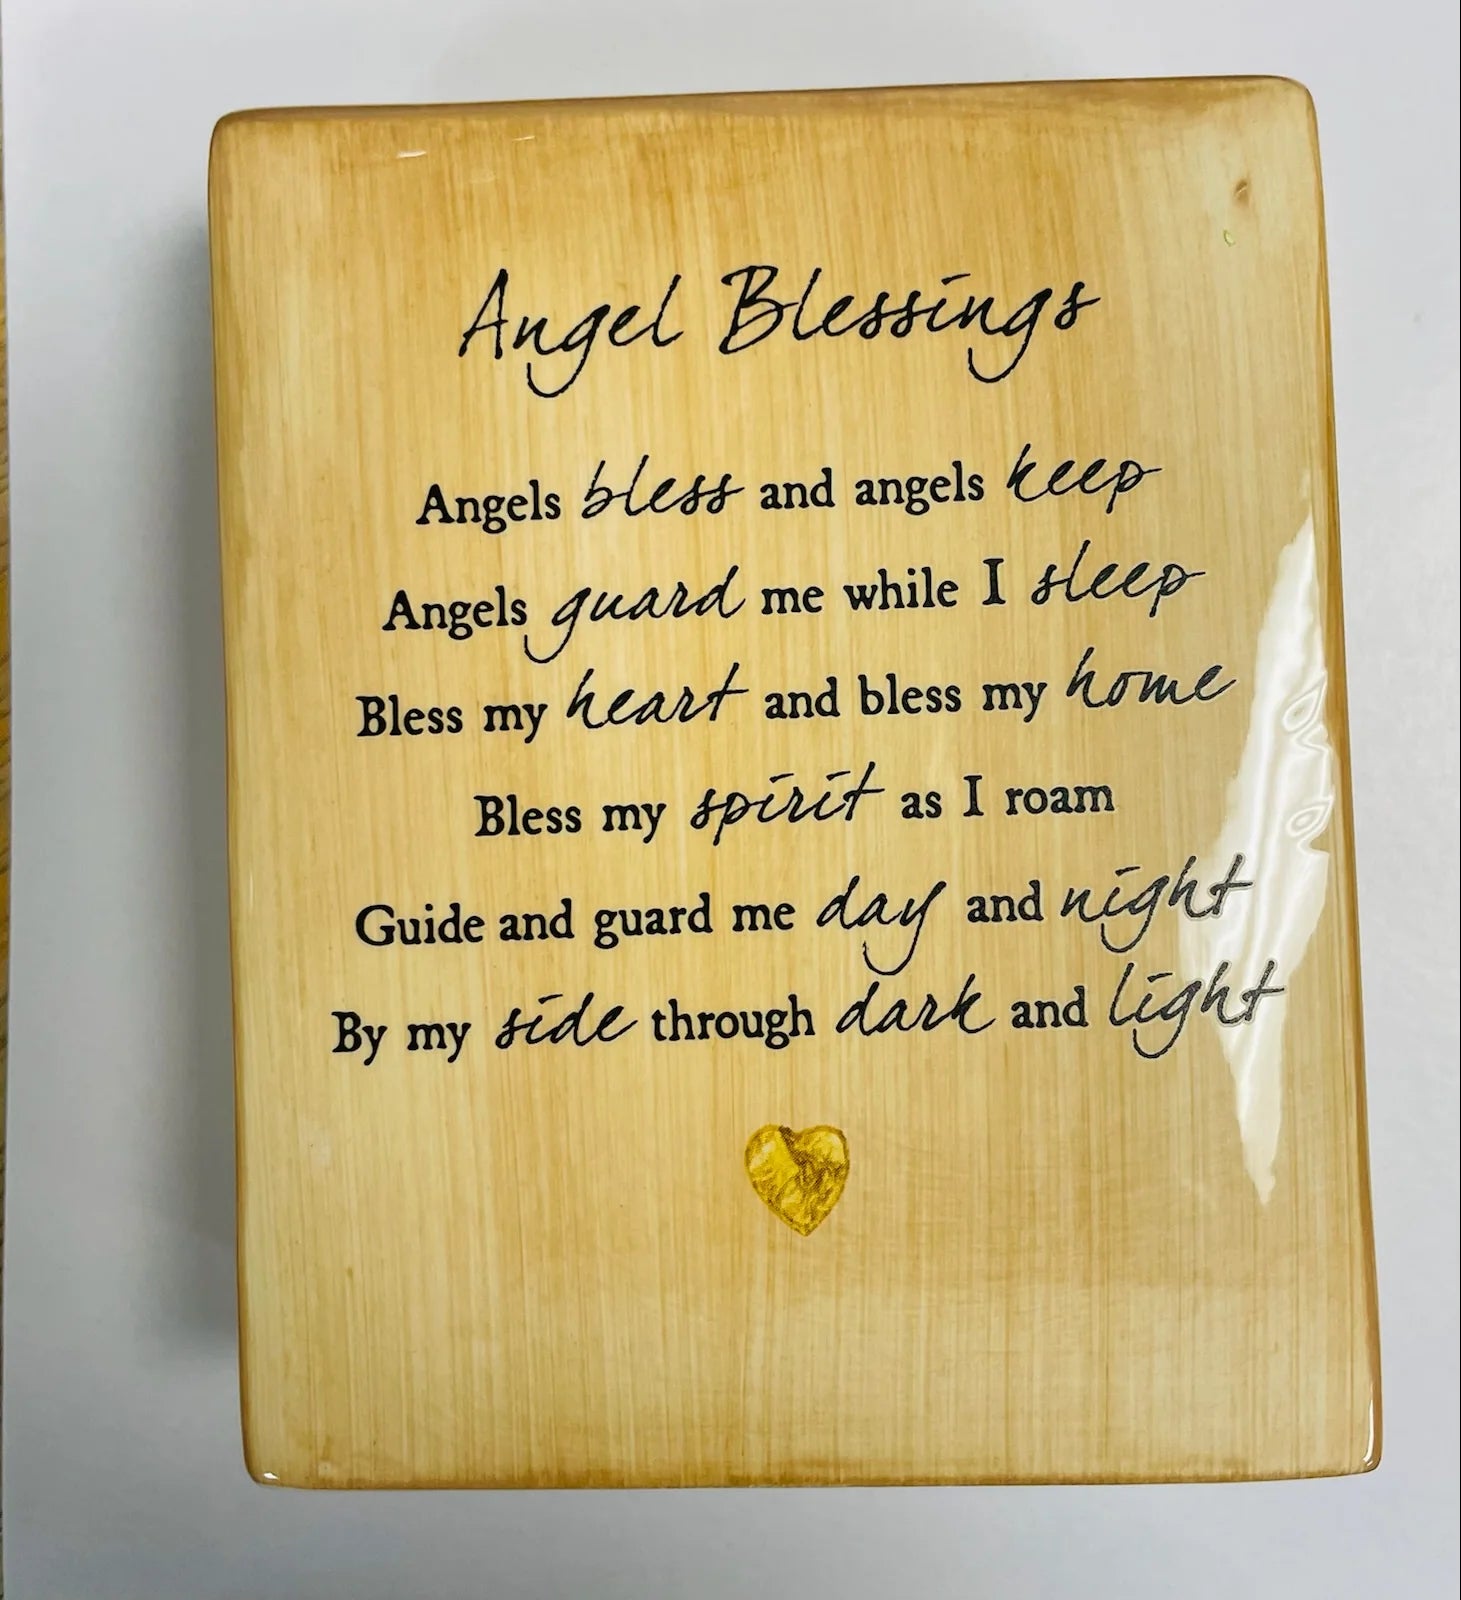 Angel Blessings
Angels bless and angels keep
Angels guard me while I sleep
Bless my heart and bless my home
Bless my spirit as I roam
Guide and guard me day and night
By my side through dark and light